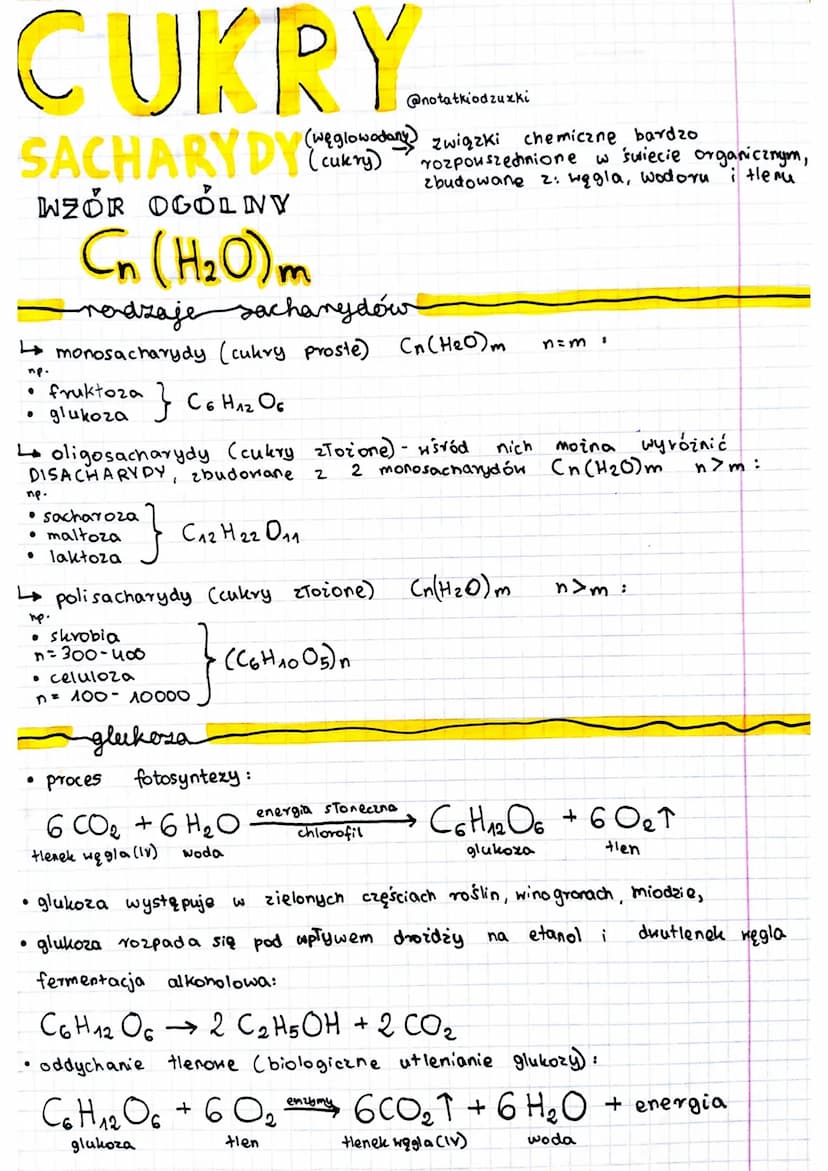 CUKRY
@notatkiodzuzki
SACHARYDY (węglowodany) → związki chemiczne bardzo
(cukry) rozpowszechnione w świecie organicznym,
zbudowane z: węgla, wodoru i tlenu
WZÓR OGÓLNY
Cn(H₂O)m
rodzaje sacharydów
↳ monosacharydy (cukry proste) Cn(H₂O)m n=m :
np.
• fruktoza
• glukoza } C₆H₁₂O₆
↳ oligosacharydy (cukry złożone) - wśród nich można wyróżnić
DISACHARYDY, zbudowane z 2 monosacharydów Cn(H₂O)m n>m :
np.
• sacharoza
• maltoza } C₁₂H₂₂O₁₁
• laktoza
↳ polisacharydy (cukry złożone) Cn(H₂O)m n>m :
np.
• skrobia
n=300-400 } (C₆H₁₀O₅)n
• celuloza
n= 100- 10000
glukoza
• proces fotosyntezy:
6 CO₂ + 6 H₂O energia słoneczna → chlorofil C₆H₁₂O₆ + 6 O₂↑
tlenek węgla (IV) woda glukoza tlen
• glukoza występuje w zielonych częściach roślin, winogronach, miodzie,
• glukoza rozpada się pod wpływem drożdży na etanol i dwutlenek węgla
fermentacja alkoholowa:
C₆H₁₂O₆ → 2 C₂H₅OH + 2 CO₂
• oddychanie tlenowe (biologiczne utlenianie glukozy):
C₆H₁₂O₆ + 6 O₂ enzymy → 6CO₂↑ + 6 H₂O + energia
glukoza tlen tlenek węgla (IV) woda